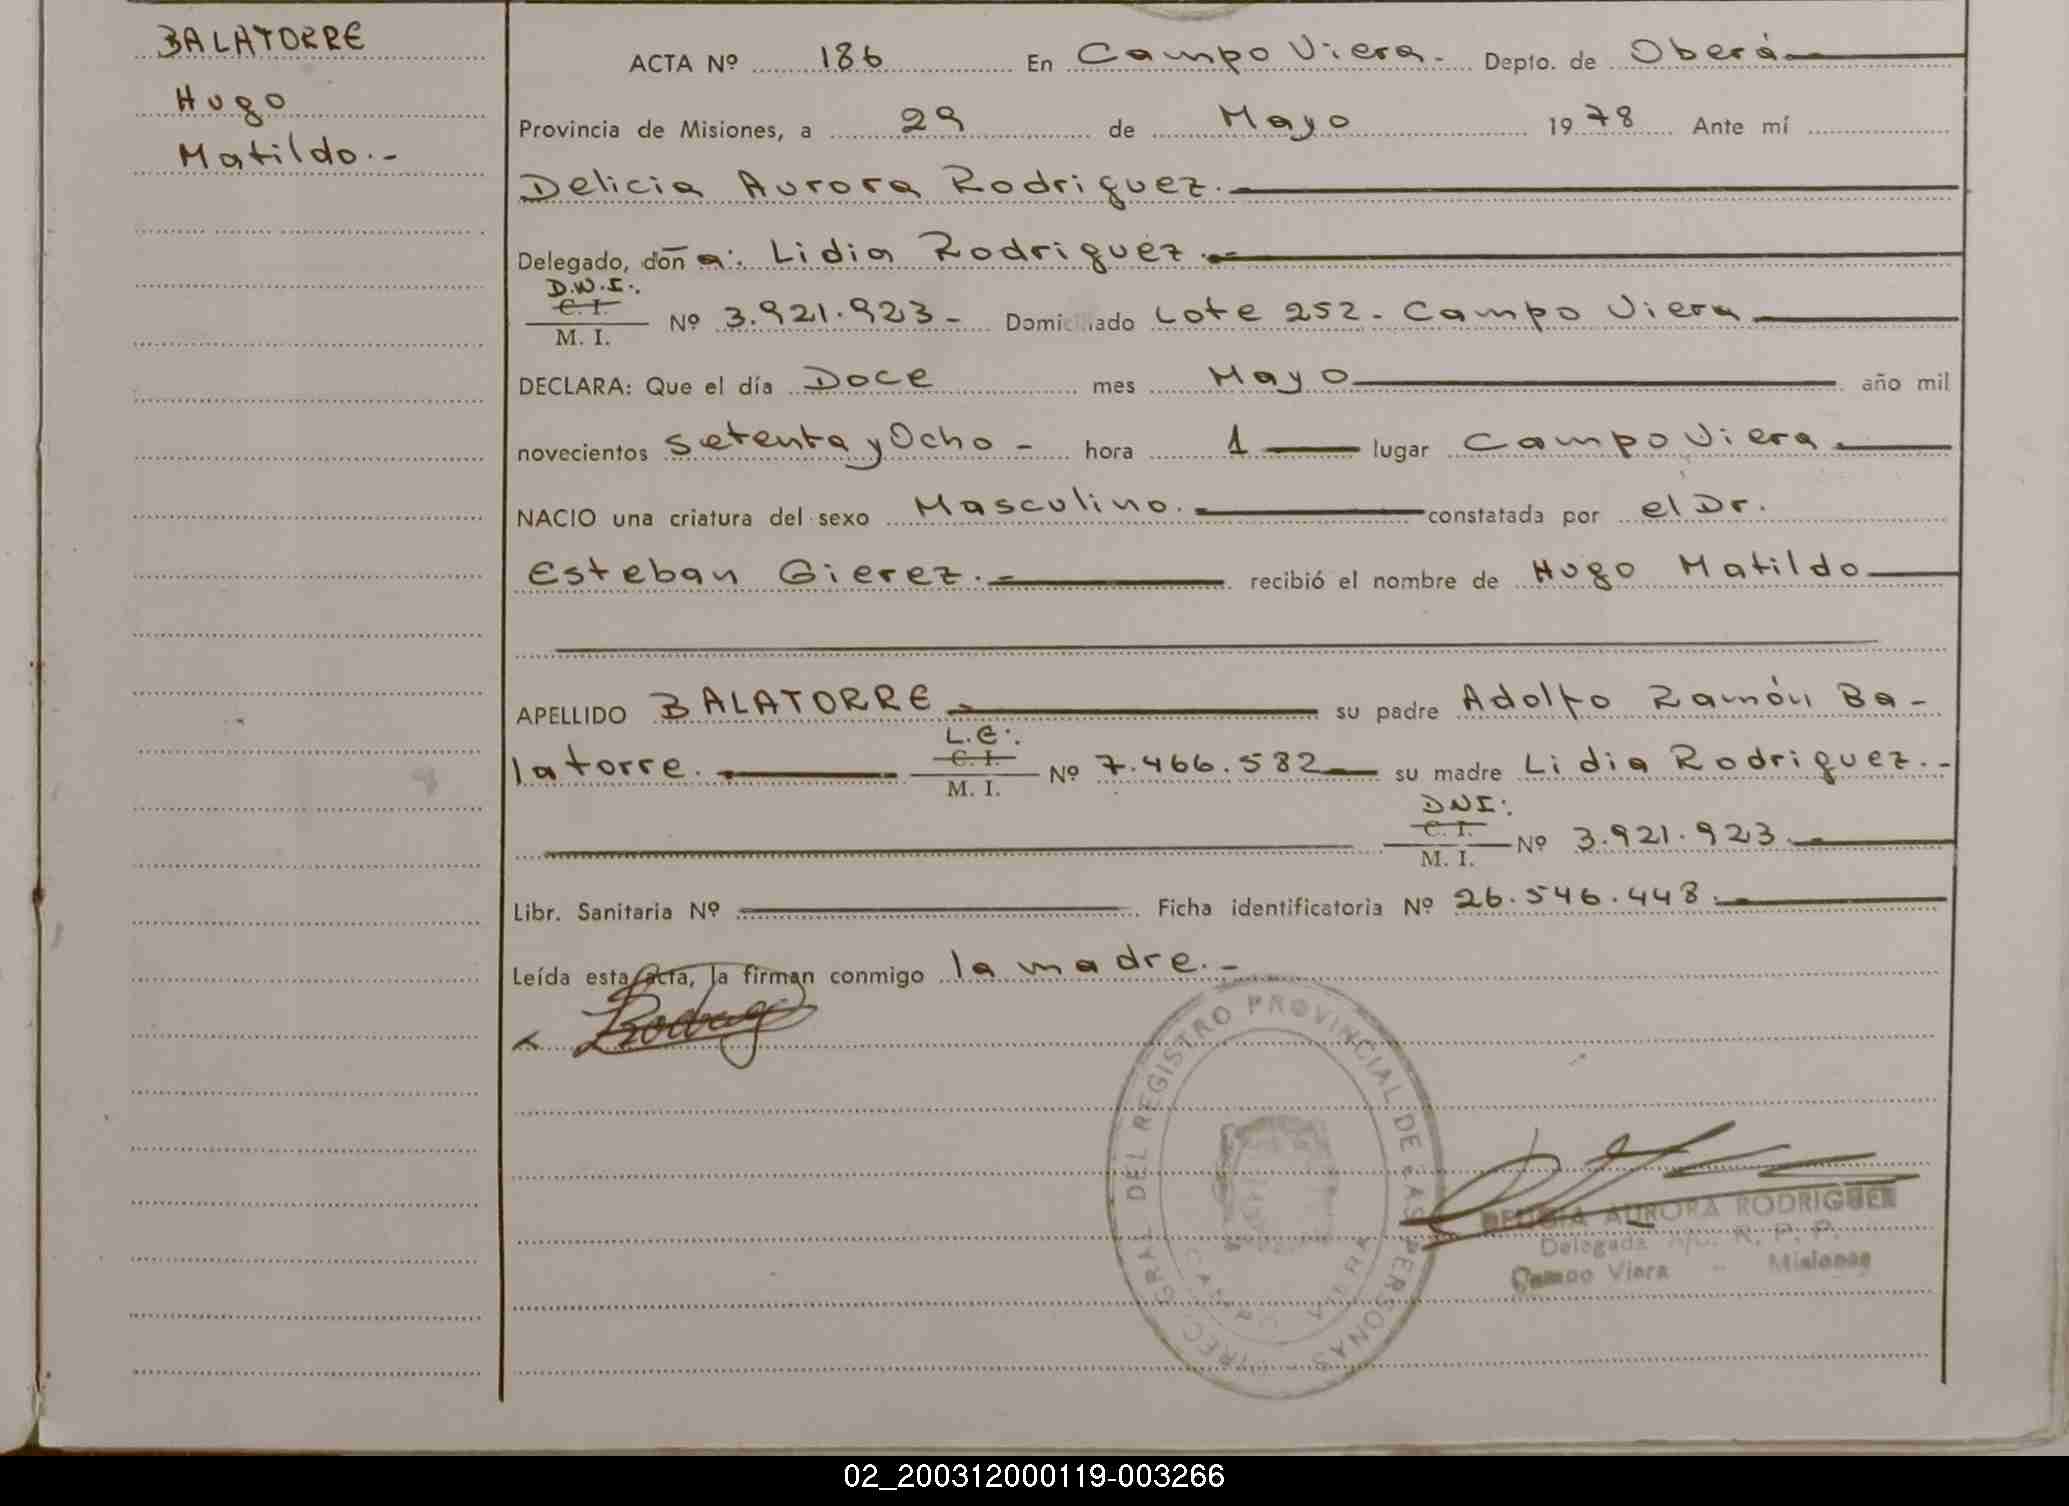 BALATORRE
Hugo
Matildo.-
ACTA Nº 186 En Campo Viera.- Depto. de Oberá
Provincia de Misiones, a 29 de Mayo 1978 Ante mí
Delicia Aurora Rodriguez.-
Delegado, doña: Lidia Rodriguez.-
D.N.I.:
C. I.
M. I.
Nº 3.921.923- Domiciliado Lote 252.- Campo Viera
DECLARA: Que el día Doce mes Mayo año mil
novecientos setenta y Ocho - hora 1 lugar Campo Viera
NACIO una criatura del sexo Masculino. constatada por el Dr.
Esteban Gierez.- recibió el nombre de Hugo Matildo
APELLIDO BALATORRE su padre Adolfo Ramón Ba-
L.E.:
latorre. C. I. Nº 7.466.582 su madre Lidia Rodriguez.-
M. I.
DNI:
C. I. Nº 3.921.923.
M. I.
Libr. Sanitaria Nº Ficha identificatoria Nº 26.546.448.
Leída esta acta, la firman conmigo la madre.-
DIREC. GRAL. DEL REGISTRO PROVINCIAL DE LAS PERSONAS
CAMPO VIERA
DELICIA AURORA RODRIGUEZ
Delegada R. P. P.
Campo Viera - Misiones
02_200312000119-003266